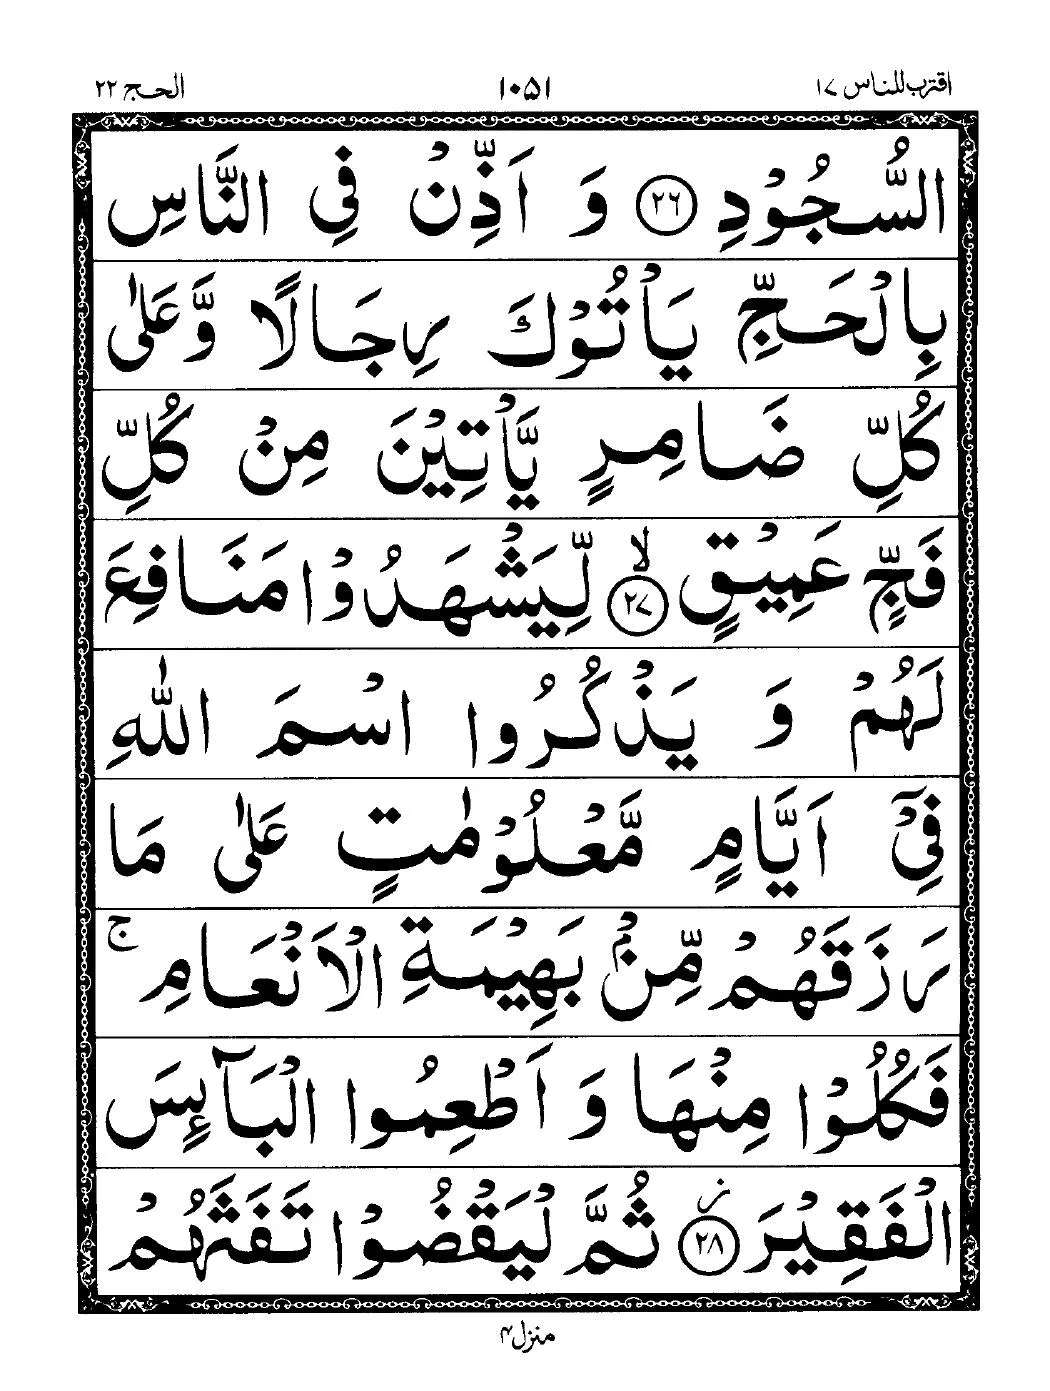 اقترب للناس ١٧ ١٠٥١ الحج ٢٢
السُّجُوۡدِ ﴿۲۶﴾ وَ اَذِّنۡ فِی النَّاسِ
بِالۡحَجِّ یَاۡتُوۡكَ رِجَالًا وَّعَلٰی
كُلِّ ضَامِرٍ یَّاۡتِیۡنَ مِنۡ كُلِّ
فَجٍّ عَمِیۡقٍ ﴿ۙ۲۷﴾ لِّیَشۡهَدُوۡا مَنَافِعَ
لَهُمۡ وَ یَذۡكُرُوا اسۡمَ اللّٰهِ
فِیۡۤ اَیَّامٍ مَّعۡلُوۡمٰتٍ عَلٰی مَا
رَزَقَهُمۡ مِّنۡۢ بَهِیۡمَةِ الۡاَنۡعَامِ ۚ
فَكُلُوۡا مِنۡهَا وَ اَطۡعِمُوا الۡبَآئِسَ
الۡفَقِیۡرَ ﴿۫۲۸﴾ ثُمَّ لۡیَقۡضُوۡا تَفَثَهُمۡ
منزل ۴